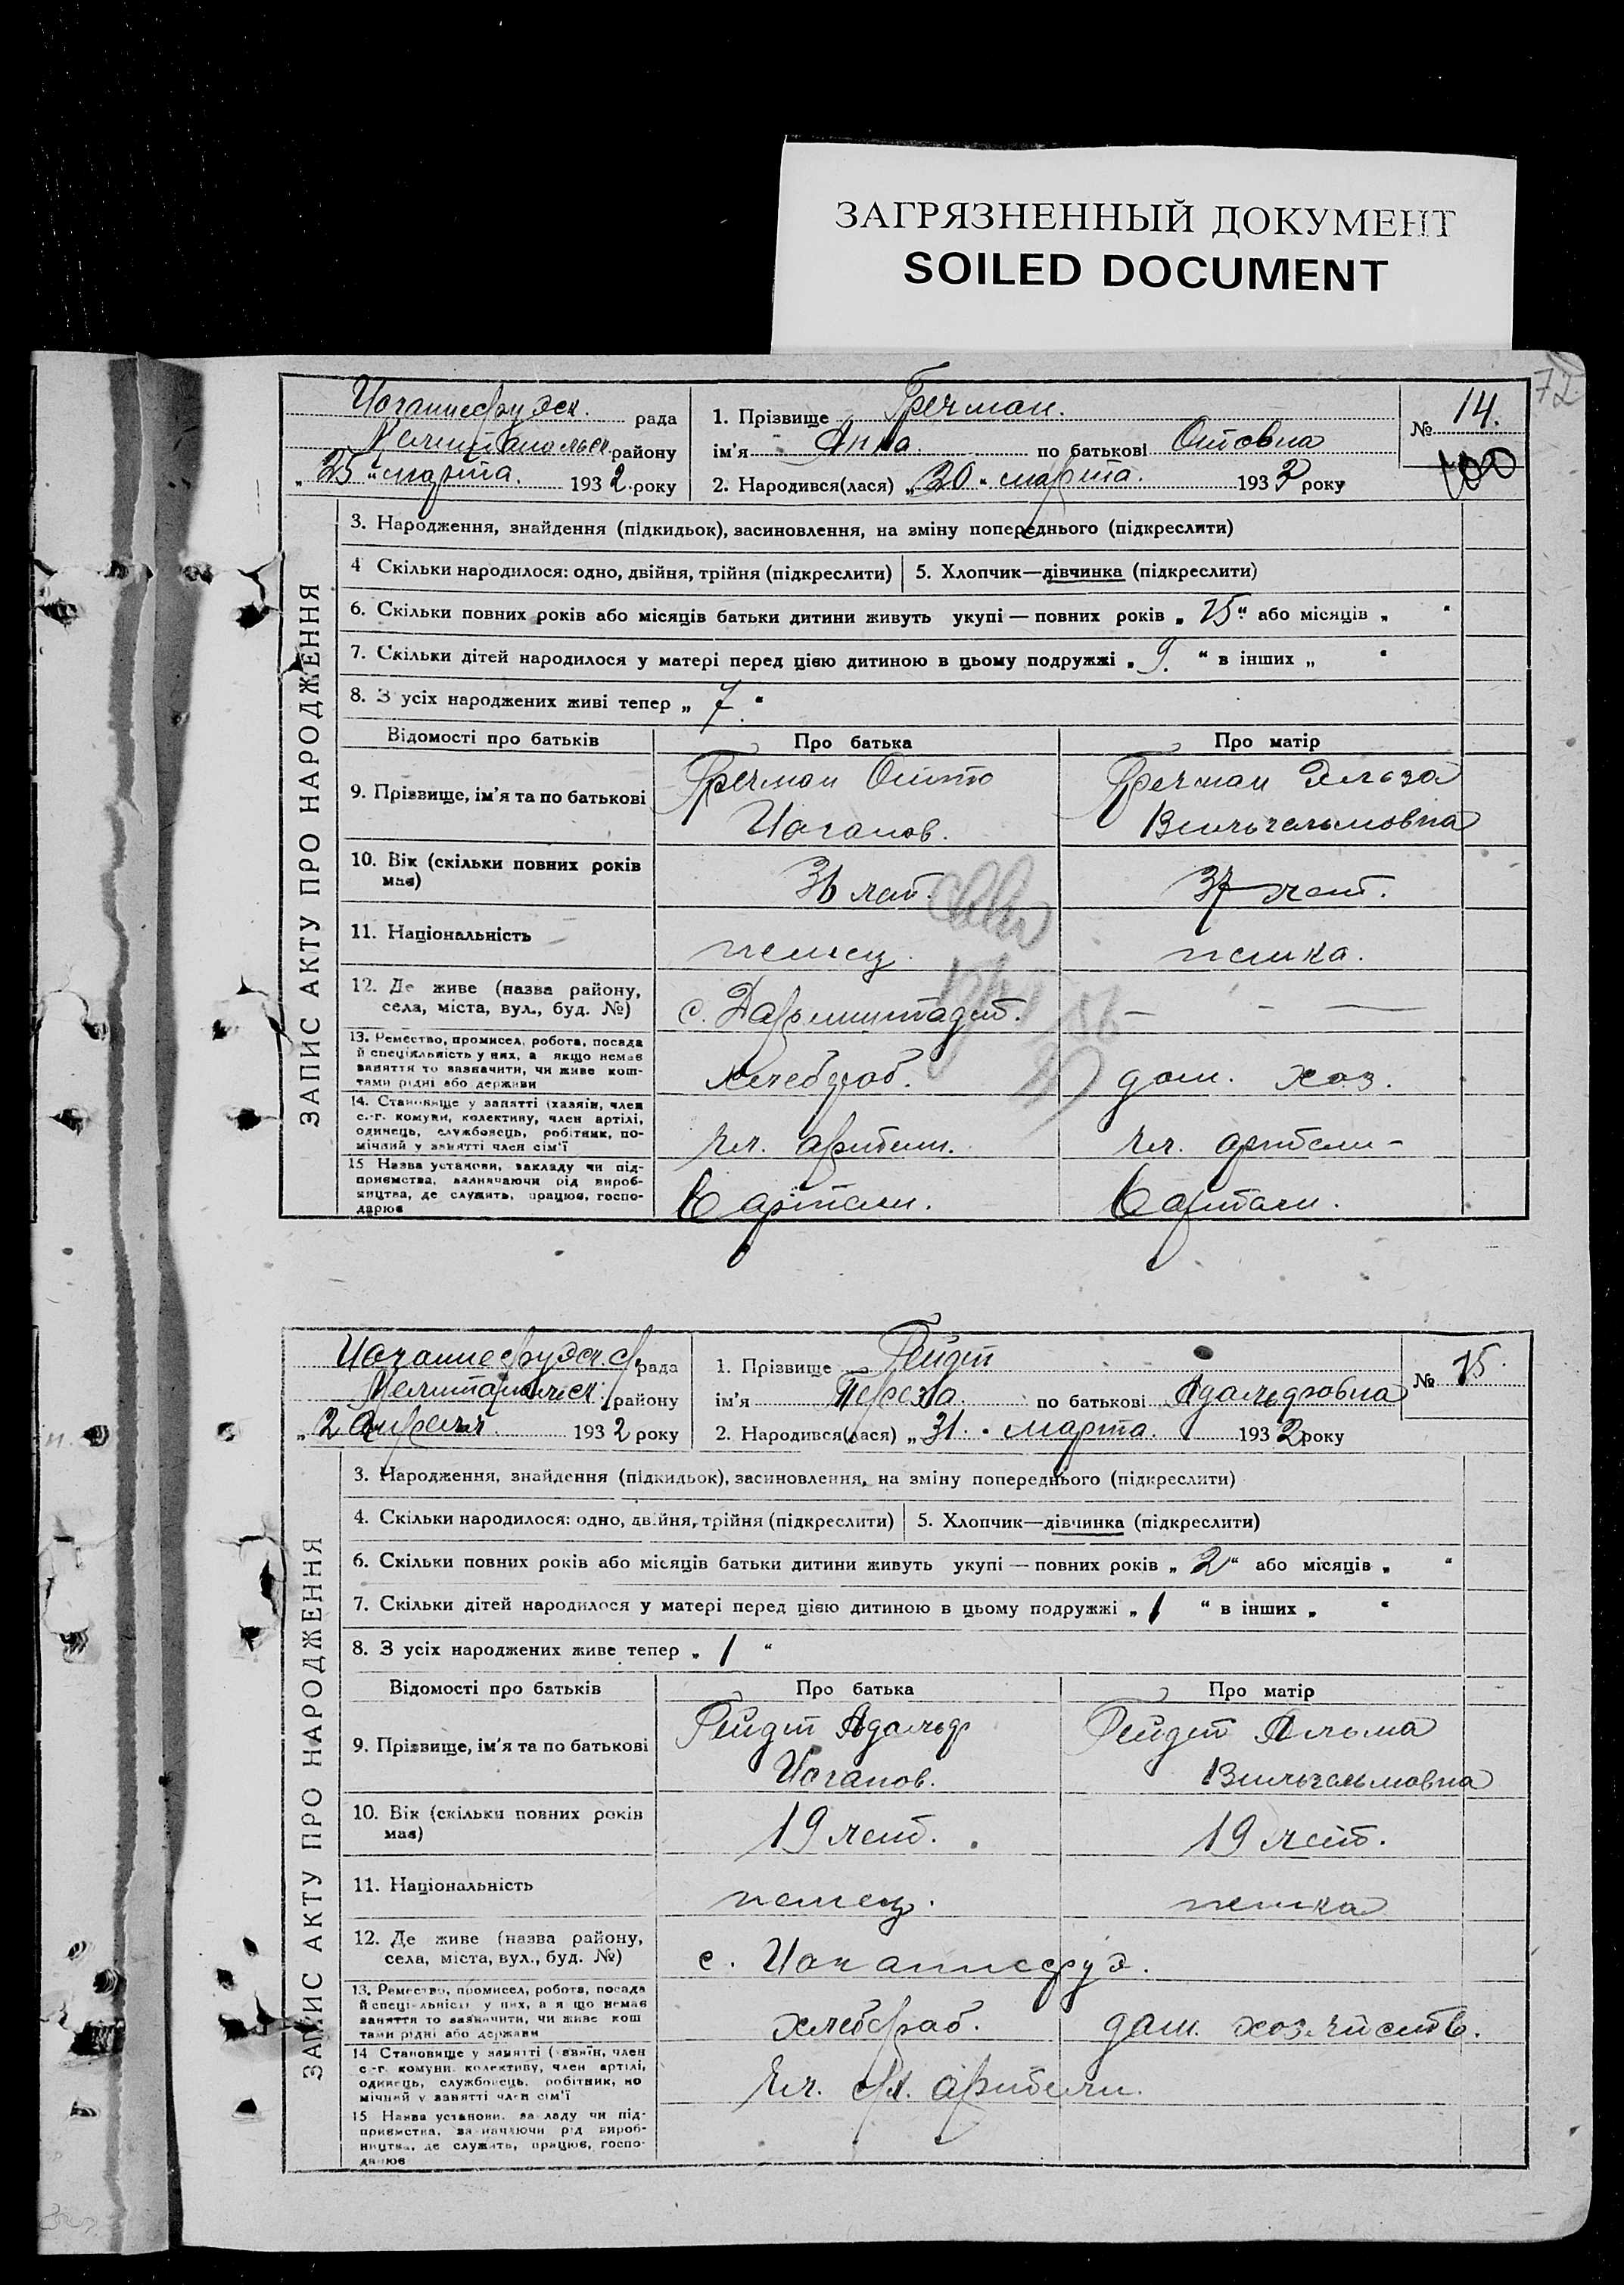 ЗАГРЯЗНЕННЫЙ ДОКУМЕНТ
SOILED DOCUMENT
72
рада
району
„25“ марта. 1932 року
1. Прізвище Гречман.
ім'я Анна. по батькові Оттовна
2. Народився(лася) „20“ марта. 1932 року
№ 14.
100
ЗАПИС АКТУ ПРО НАРОДЖЕННЯ
3. Народження, знайдення (підкидьок), засиновлення, на зміну попереднього (підкреслити)
4 Скільки народилося: одно, двійня, трійня (підкреслити)
5. Хлопчик—дівчинка (підкреслити)
6. Скільки повних років або місяців батьки дитини живуть укупі — повних років „15“ або місяців „ “
7. Скільки дітей народилося у матері перед цією дитиною в цьому подружжі „9.“ в інших „ “
8. З усіх народжених живі тепер „7.“
Відомості про батьків
Про батька
Про матір
9. Прізвище, ім'я та по батькові
Гречман Отто
Иоганов.
Гречман Эльза
Вильгельмовна
10. Вік (скільки повних років має)
36 лет.
37 лет.
11. Національність
немец.
немка.
12. Де живе (назва району, села, міста, вул., буд. №)
с. Дармштадт.
— - —
13. Ремество, промисел, робота, посада
й спеціяльність у них, а якщо немає
заняття то зазначити, чи живе кош-
тами рідні або держави
хлебороб.
дом. хоз.
14. Становище у занятті (хазяїн, член
с.-г. комуни, колективу, член артілі,
одинець, службовець, робітник, по-
мічний у занятті член сім'ї
чл. артели.
чл. артели -
15 Назва установи, закладу чи під-
приємства, зазначаючи рід вироб-
ництва, де служить, працює, госпо-
дарює
В артели.
В артели.
рада
району
„2 апреля. 1932 року
1. Прізвище Гейдт
ім'я Тереза. по батькові Адольфовна
2. Народився(лася) „31. “ марта. 1932 року
№ 15.
ЗАПИС АКТУ ПРО НАРОДЖЕННЯ
3. Народження, знайдення (підкидьок), засиновлення, на зміну попереднього (підкреслити)
4. Скільки народилося: одно, двійня, трійня (підкреслити)
5. Хлопчик—дівчинка (підкреслити)
6. Скільки повних років або місяців батьки дитини живуть укупі — повних років „2“ або місяців „ “
7. Скільки дітей народилося у матері перед цією дитиною в цьому подружжі „1 “ в інших „ “
8. З усіх народжених живе тепер „1 “
Відомості про батьків
Про батька
Про матір
9. Прізвище, ім'я та по батькові
Гейдт Адольф
Иоганов.
Гейдт Альма
Вильгельмовна
10. Вік (скільки повних років має)
19 лет.
19 лет.
11. Національність
немец.
немка
12. Де живе (назва району, села, міста, вул., буд. №)
с. Иоганнесруэ.
13. Ремество, промисел, робота, посада
й спеціяльність у них, а якщо немає
заняття то зазначити, чи живе кош
тами рідні або держави
хлебороб.
дом. хозяйств.
14 Становище у занятті (хазяїн, член
с.-г. комуни, колективу, член артілі,
одинець, службовець, робітник, по
мічний у занятті член сім'ї
чл. с/х. артели.
15 Назва установи, закладу чи під-
приємства, зазначаючи рід вироб-
ництва, де служить, працює, госпо-
дарює